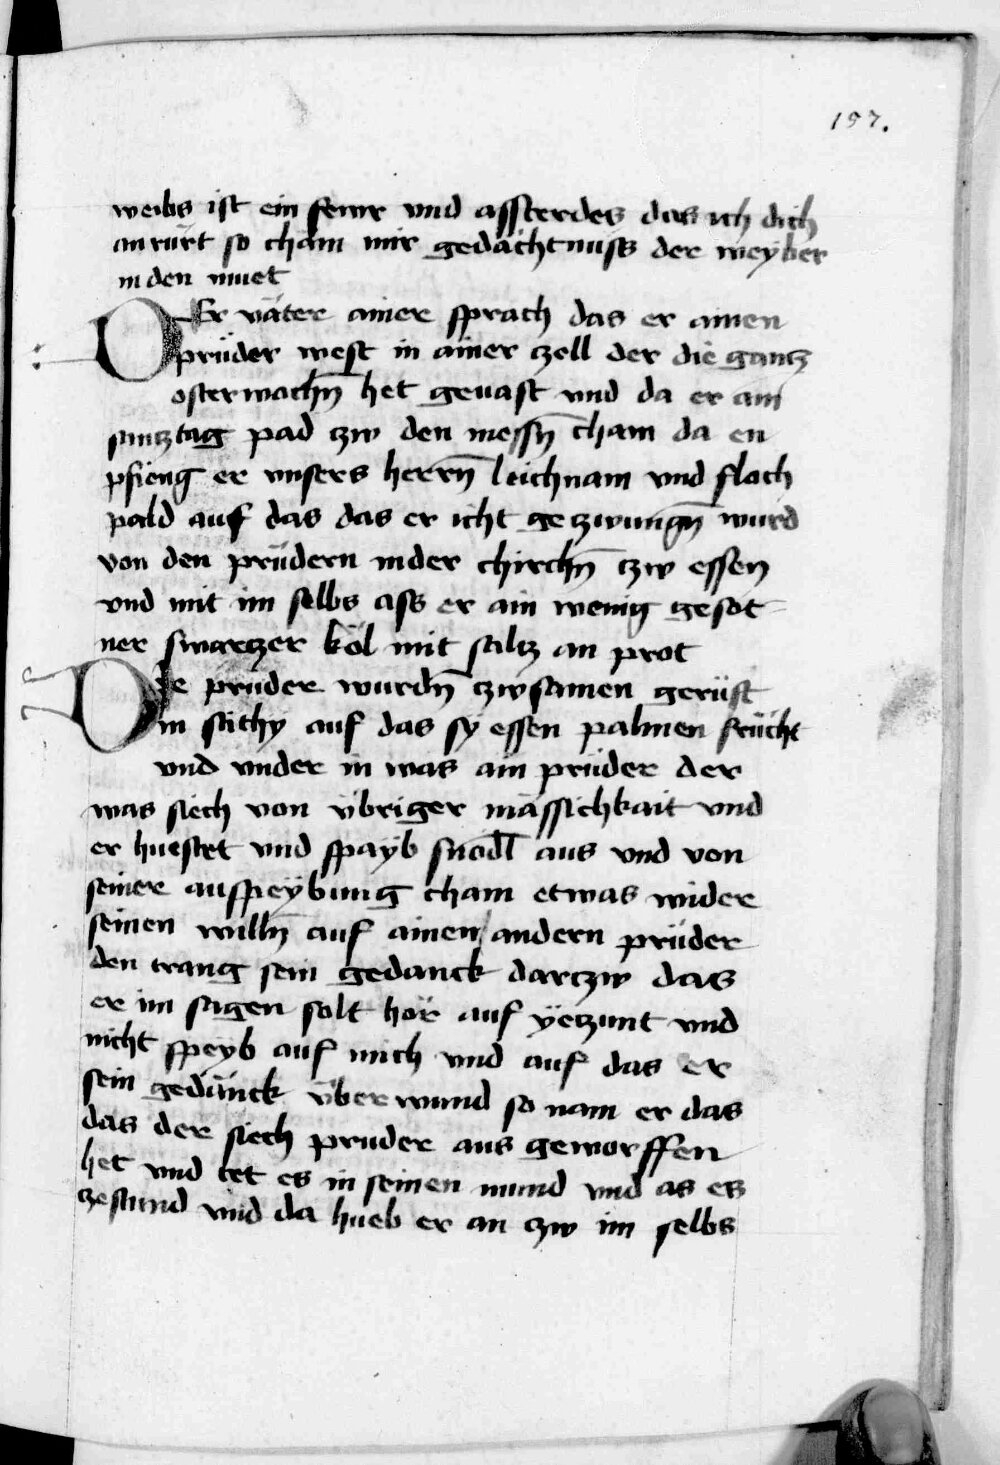 157.
weibs ist ein fewr vnd assterdes das ich dich
an rürt so cham mir gedächtnuss der weyber
in den muet
Der väter ainer sprach das er ainen
prüder west in ainer zell der die gantz
osterwochn̄ het geuast vnd da er am
suntztag pad tzw den messn̄ cham da en
pfieng er vnsers herrn̄ leichnam vnd floch
pald auf das das er icht getzwungn̄ wurd
von den prüdern in der chirchn̄ tzw essen
vnd mit im selbs ass er ain wenig gesot
ner swartzer köl mit saltz an prot
Die prüder wurdn̄ tzwsamen gerüst
in sithy auf das sy essen palmen frücht
vnd vnder in was ain prüder der
was siech von übriger mässichkait vnd
er huestet vnd spayb snodl̄ aus vnd von
seiner ausspeybung cham etwas wider
seinen willn̄ auf ainen andern prüder
den trang sein gedanck dartzw das
er im sagen solt hör auf yetzunt vnd
nicht speyb auf mich vnd auf das er
sein gedänck überwund so nam er das
das der siech pruder aus geworffen
het vnd tet es in seinen mund vnd as es
zestund vnd da hueb er an tzw im selbs